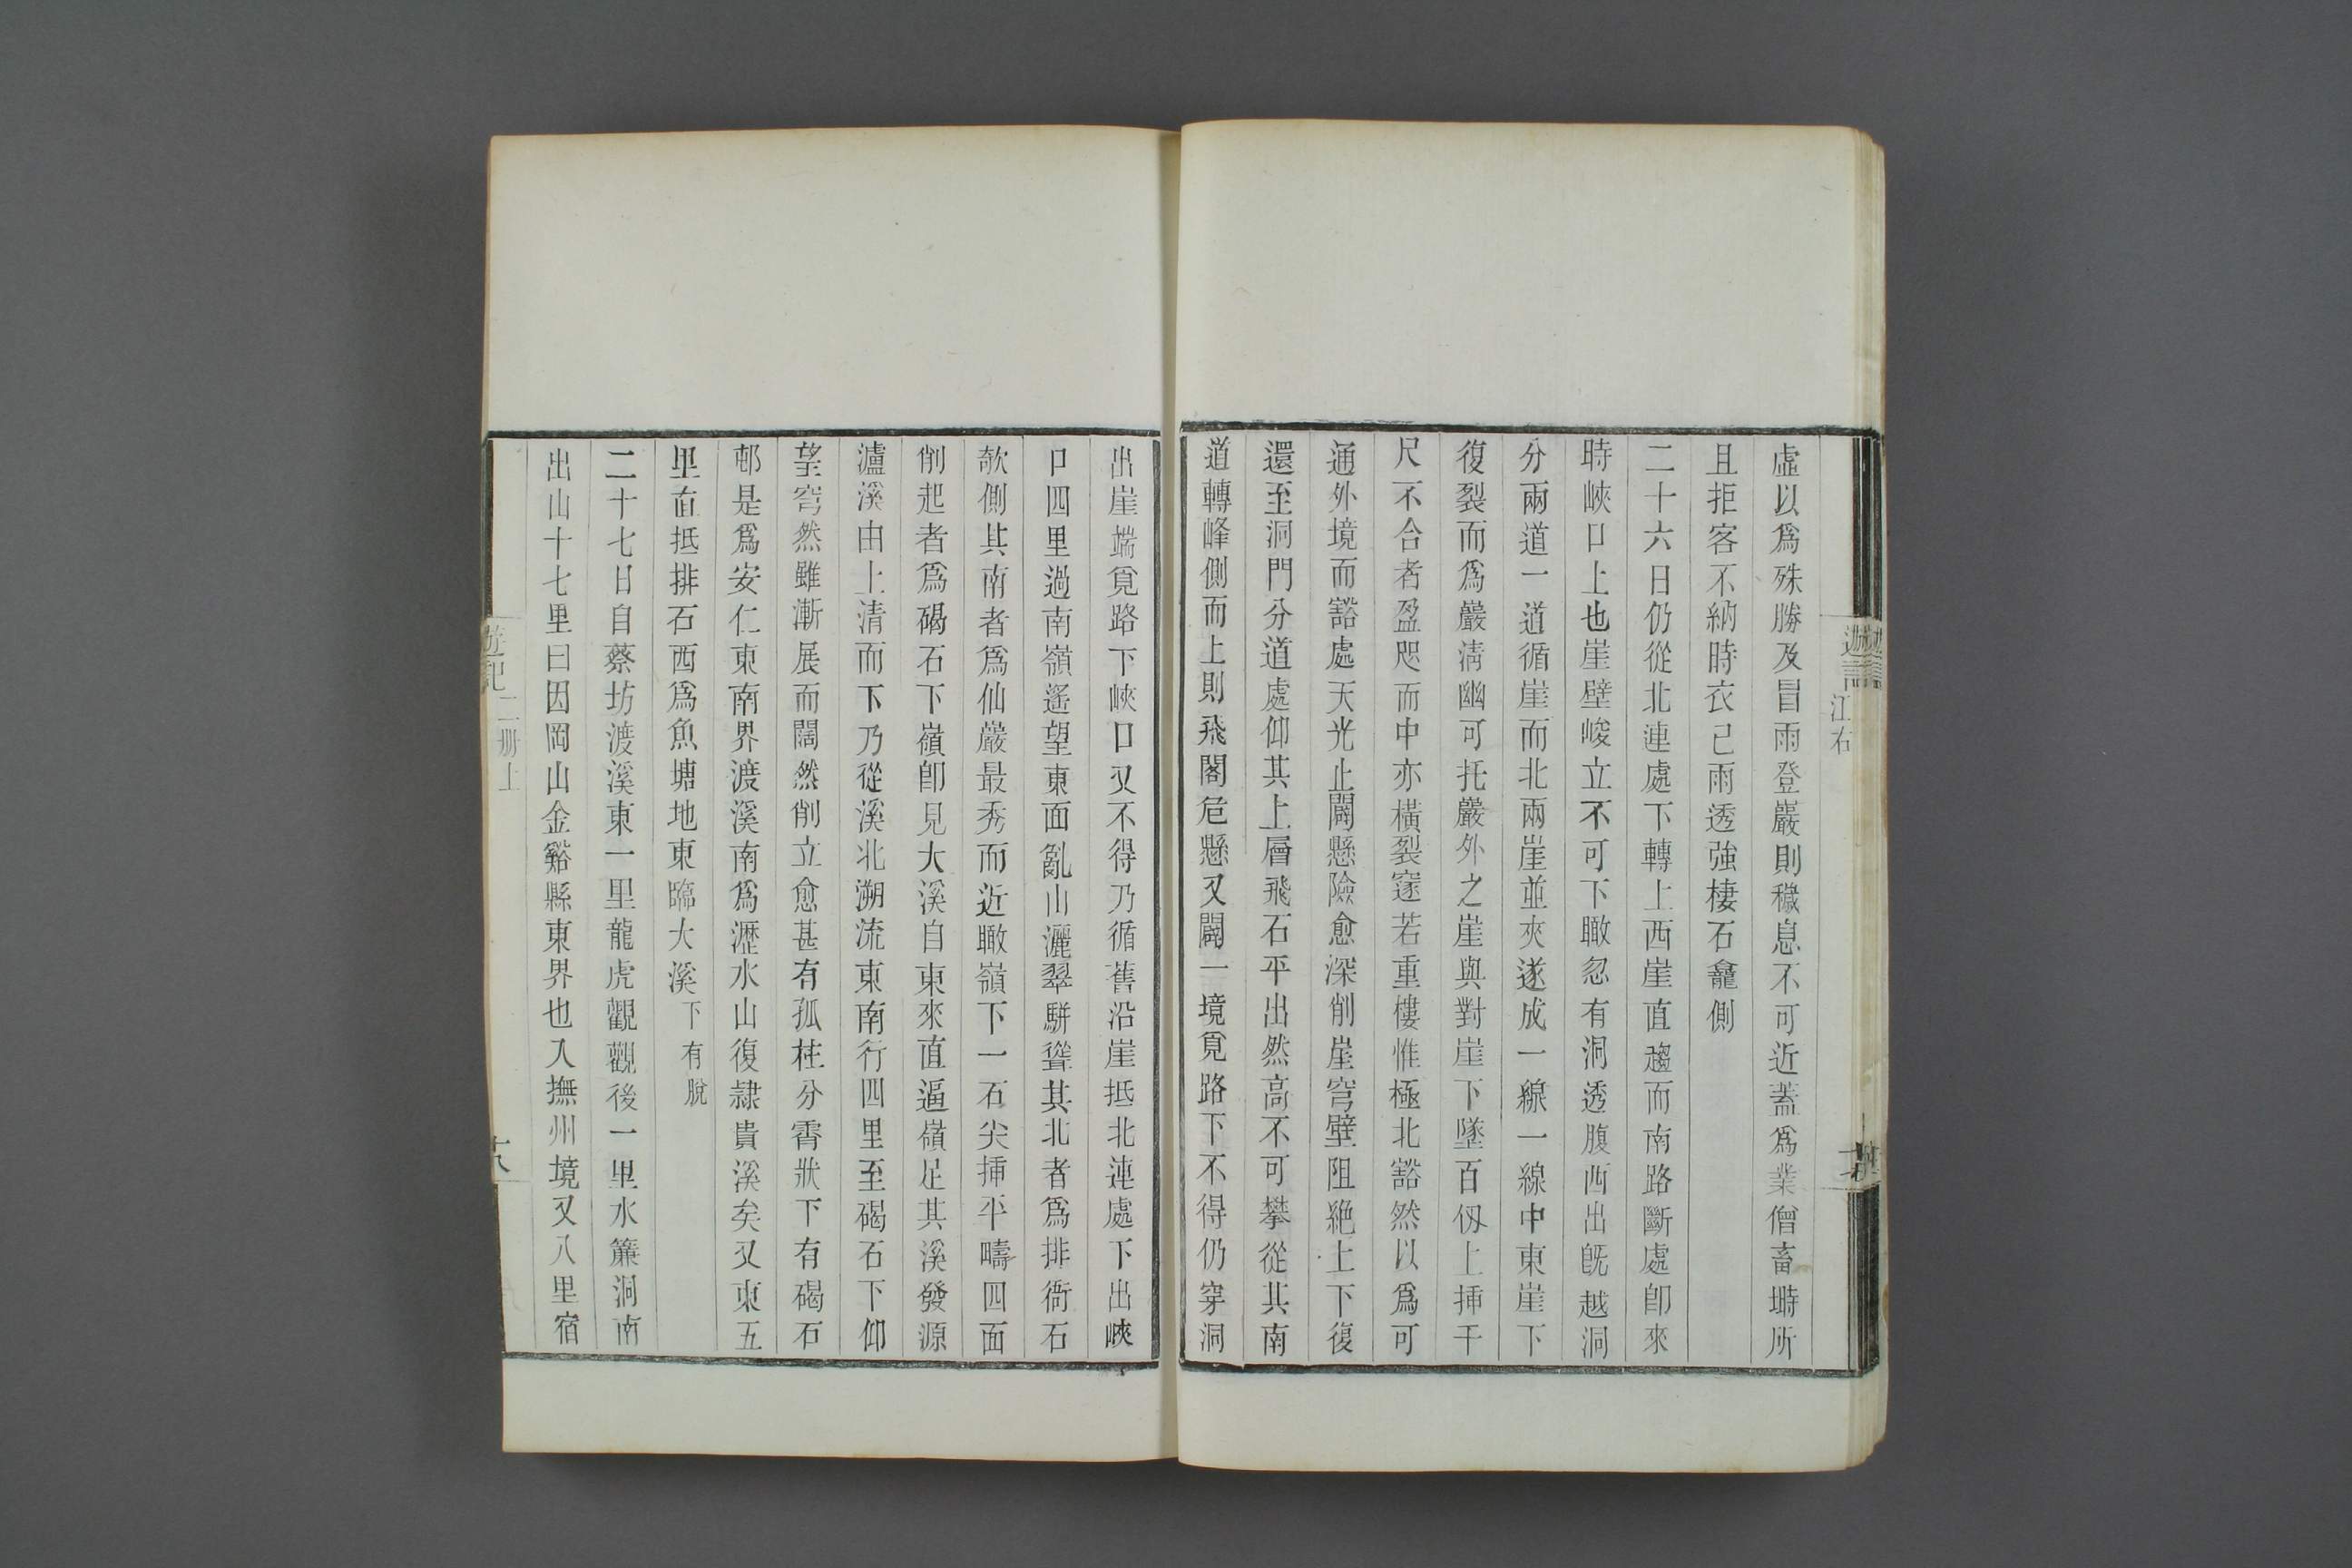 虛以爲殊勝及冒雨登巖則穢息不可近蓋爲業僧畜塒所
且拒客不納時衣已雨透強棲石龕側
二十六日仍從北連處下轉上西崖直趨而南路斷處卽來
時峽口上也崖壁峻立不可下瞰忽有洞透腹西出旣越洞
分兩道一道循崖而北兩崖並夾遂成一線一線中東崖下
復裂而爲巖淸幽可托巖外之崖與對崖下墜百仭上揷千
尺不合者盈咫而中亦橫裂窪若重樓惟極北豁然以爲可
通外境而豁處天光止闢懸險愈深削崖穹壁阻絶上下復
還至洞門分道處仰其上層飛石平出然高不可攀從其南
道轉峰側而上則飛閣危懸又闢一境覓路下不得仍穿洞
出崖端覓路下峽口又不得乃循舊沿崖抵北連處下出峽
口四里過南嶺遙望東面亂山灑翠駢聳其北者爲排衙石
欹側其南者爲仙巖最秀而近瞰嶺下一石尖揷平疇四面
削起者爲碣石下嶺卽見大溪自東來直逼嶺足其溪發源
瀘溪由上清而下乃從溪北溯流東南行四里至碣石下仰
望穹然雖漸展而闊然削立愈甚有孤柱分霄狀下有碣石
邨是爲安仁東南界渡溪南爲瀝水山復隷貴溪矣又東五
里直抵排石西爲魚塘地東臨大溪下有脫
二十七日自蔡坊渡溪東一里龍虎觀觀後一里水簾洞南
出山十七里曰因岡山金谿縣東界也入撫州境又八里宿
遊記 二册上
十八
江右